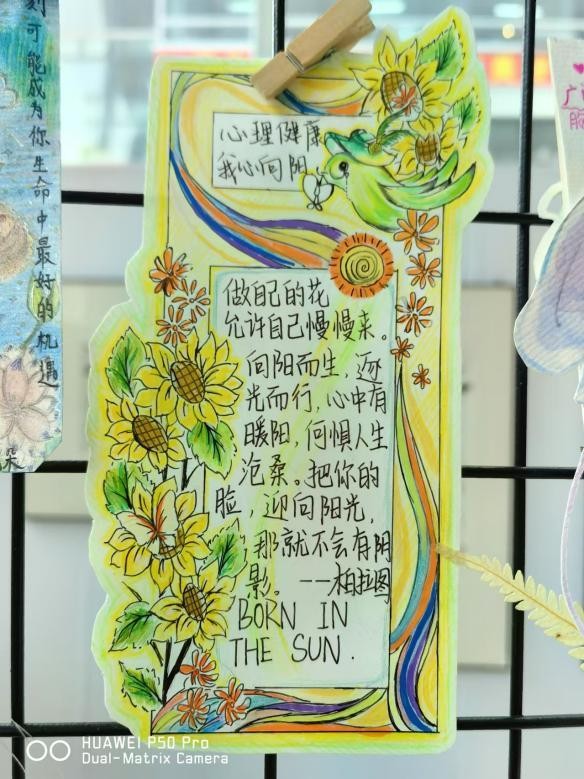 刻可能成为你生命中最好的机遇
朵
心理健康
我心向阳
做自己的花
允许自己慢慢来。
向阳而生，逐
光而行，心中有
暖阳，何惧人生
沧桑。把你的
脸，迎向阳光，
那就不会有阴
影。——柏拉图
BORN IN
THE SUN.
HUAWEI P50 Pro
Dual-Matrix Camera